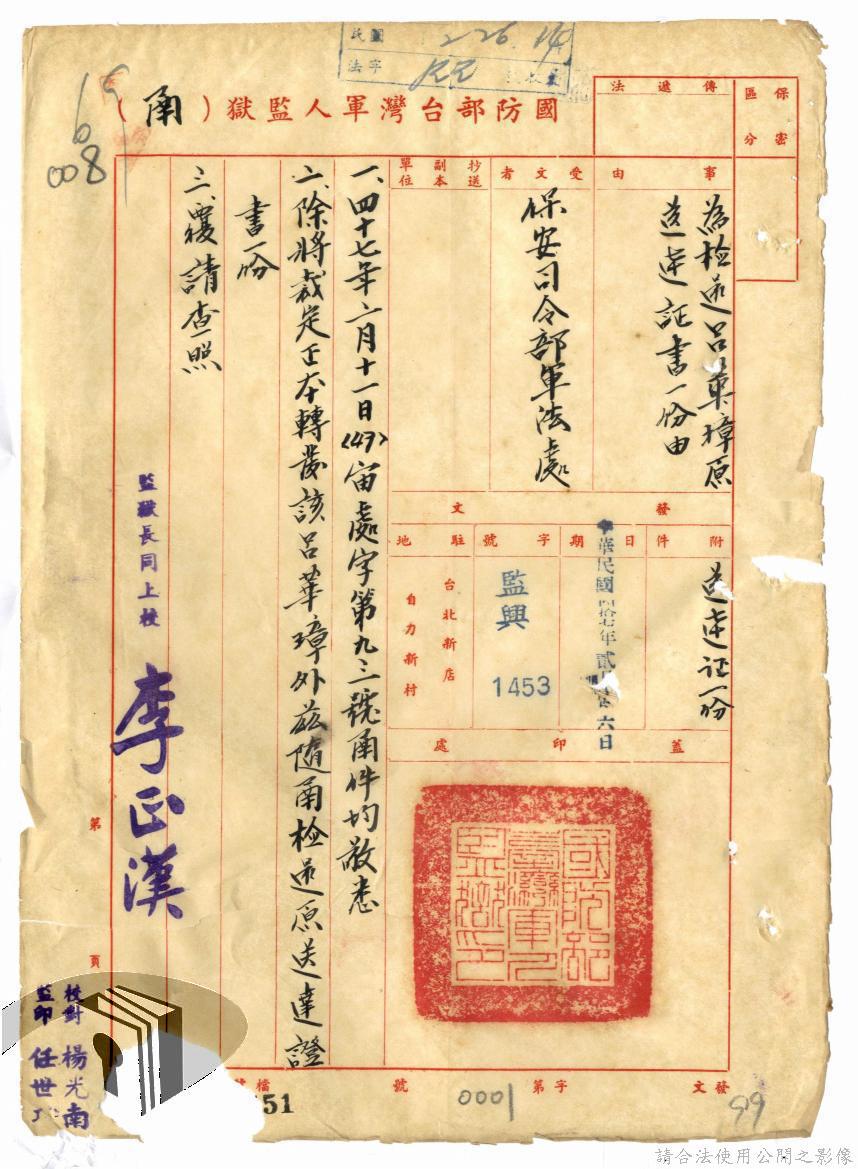 國防部台灣軍人監獄(甬)
保密區分
傳遞法
事由
為檢送呂華璋原
送達証書一份由
受文者
保安司令部軍法處
抄送副本單位
發文
附件
送達证一份
日期
中華民國四拾七年貳月廿六日
字號
監興
1453
駐地
台北新店
自力新村
蓋印處
國防部臺灣軍人監獄印
一、四十七年二月十一日(47)宙處字第九三號甬件均敬悉
二、除將裁定正本轉發該呂華璋外茲隨甬檢送原送達證
書一份
三、覆請查照
監獄長同上校
李正漢
校對 楊光南
監印 任世
第 頁
發文 字第 0001 號
檔
51
99
民國 2 26 14
法字
008
請合法使用公開之影像